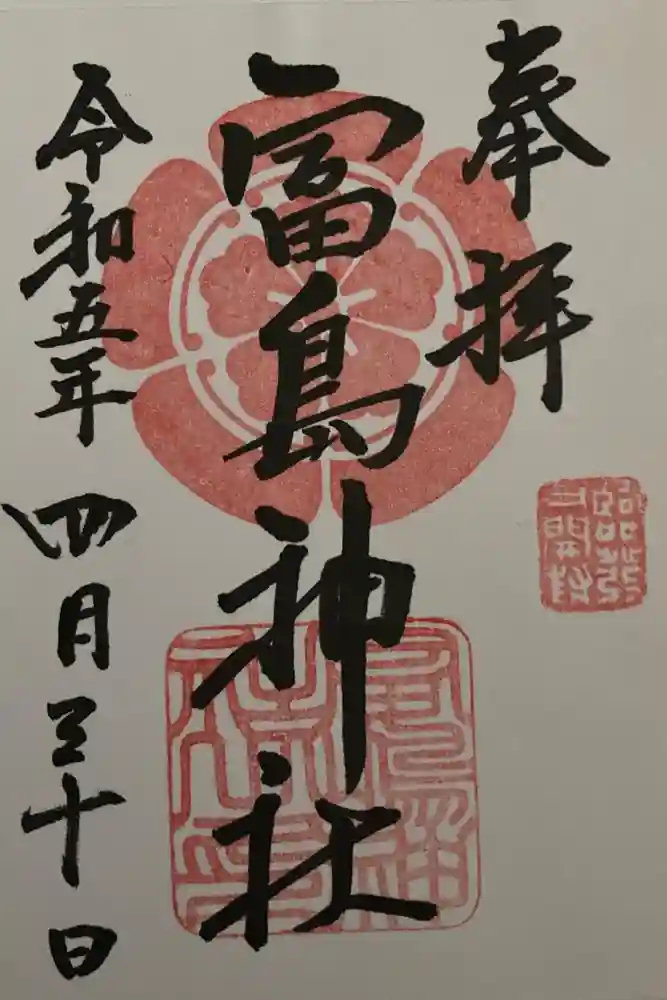 奉拝
富島神社
令和五年四月三十日